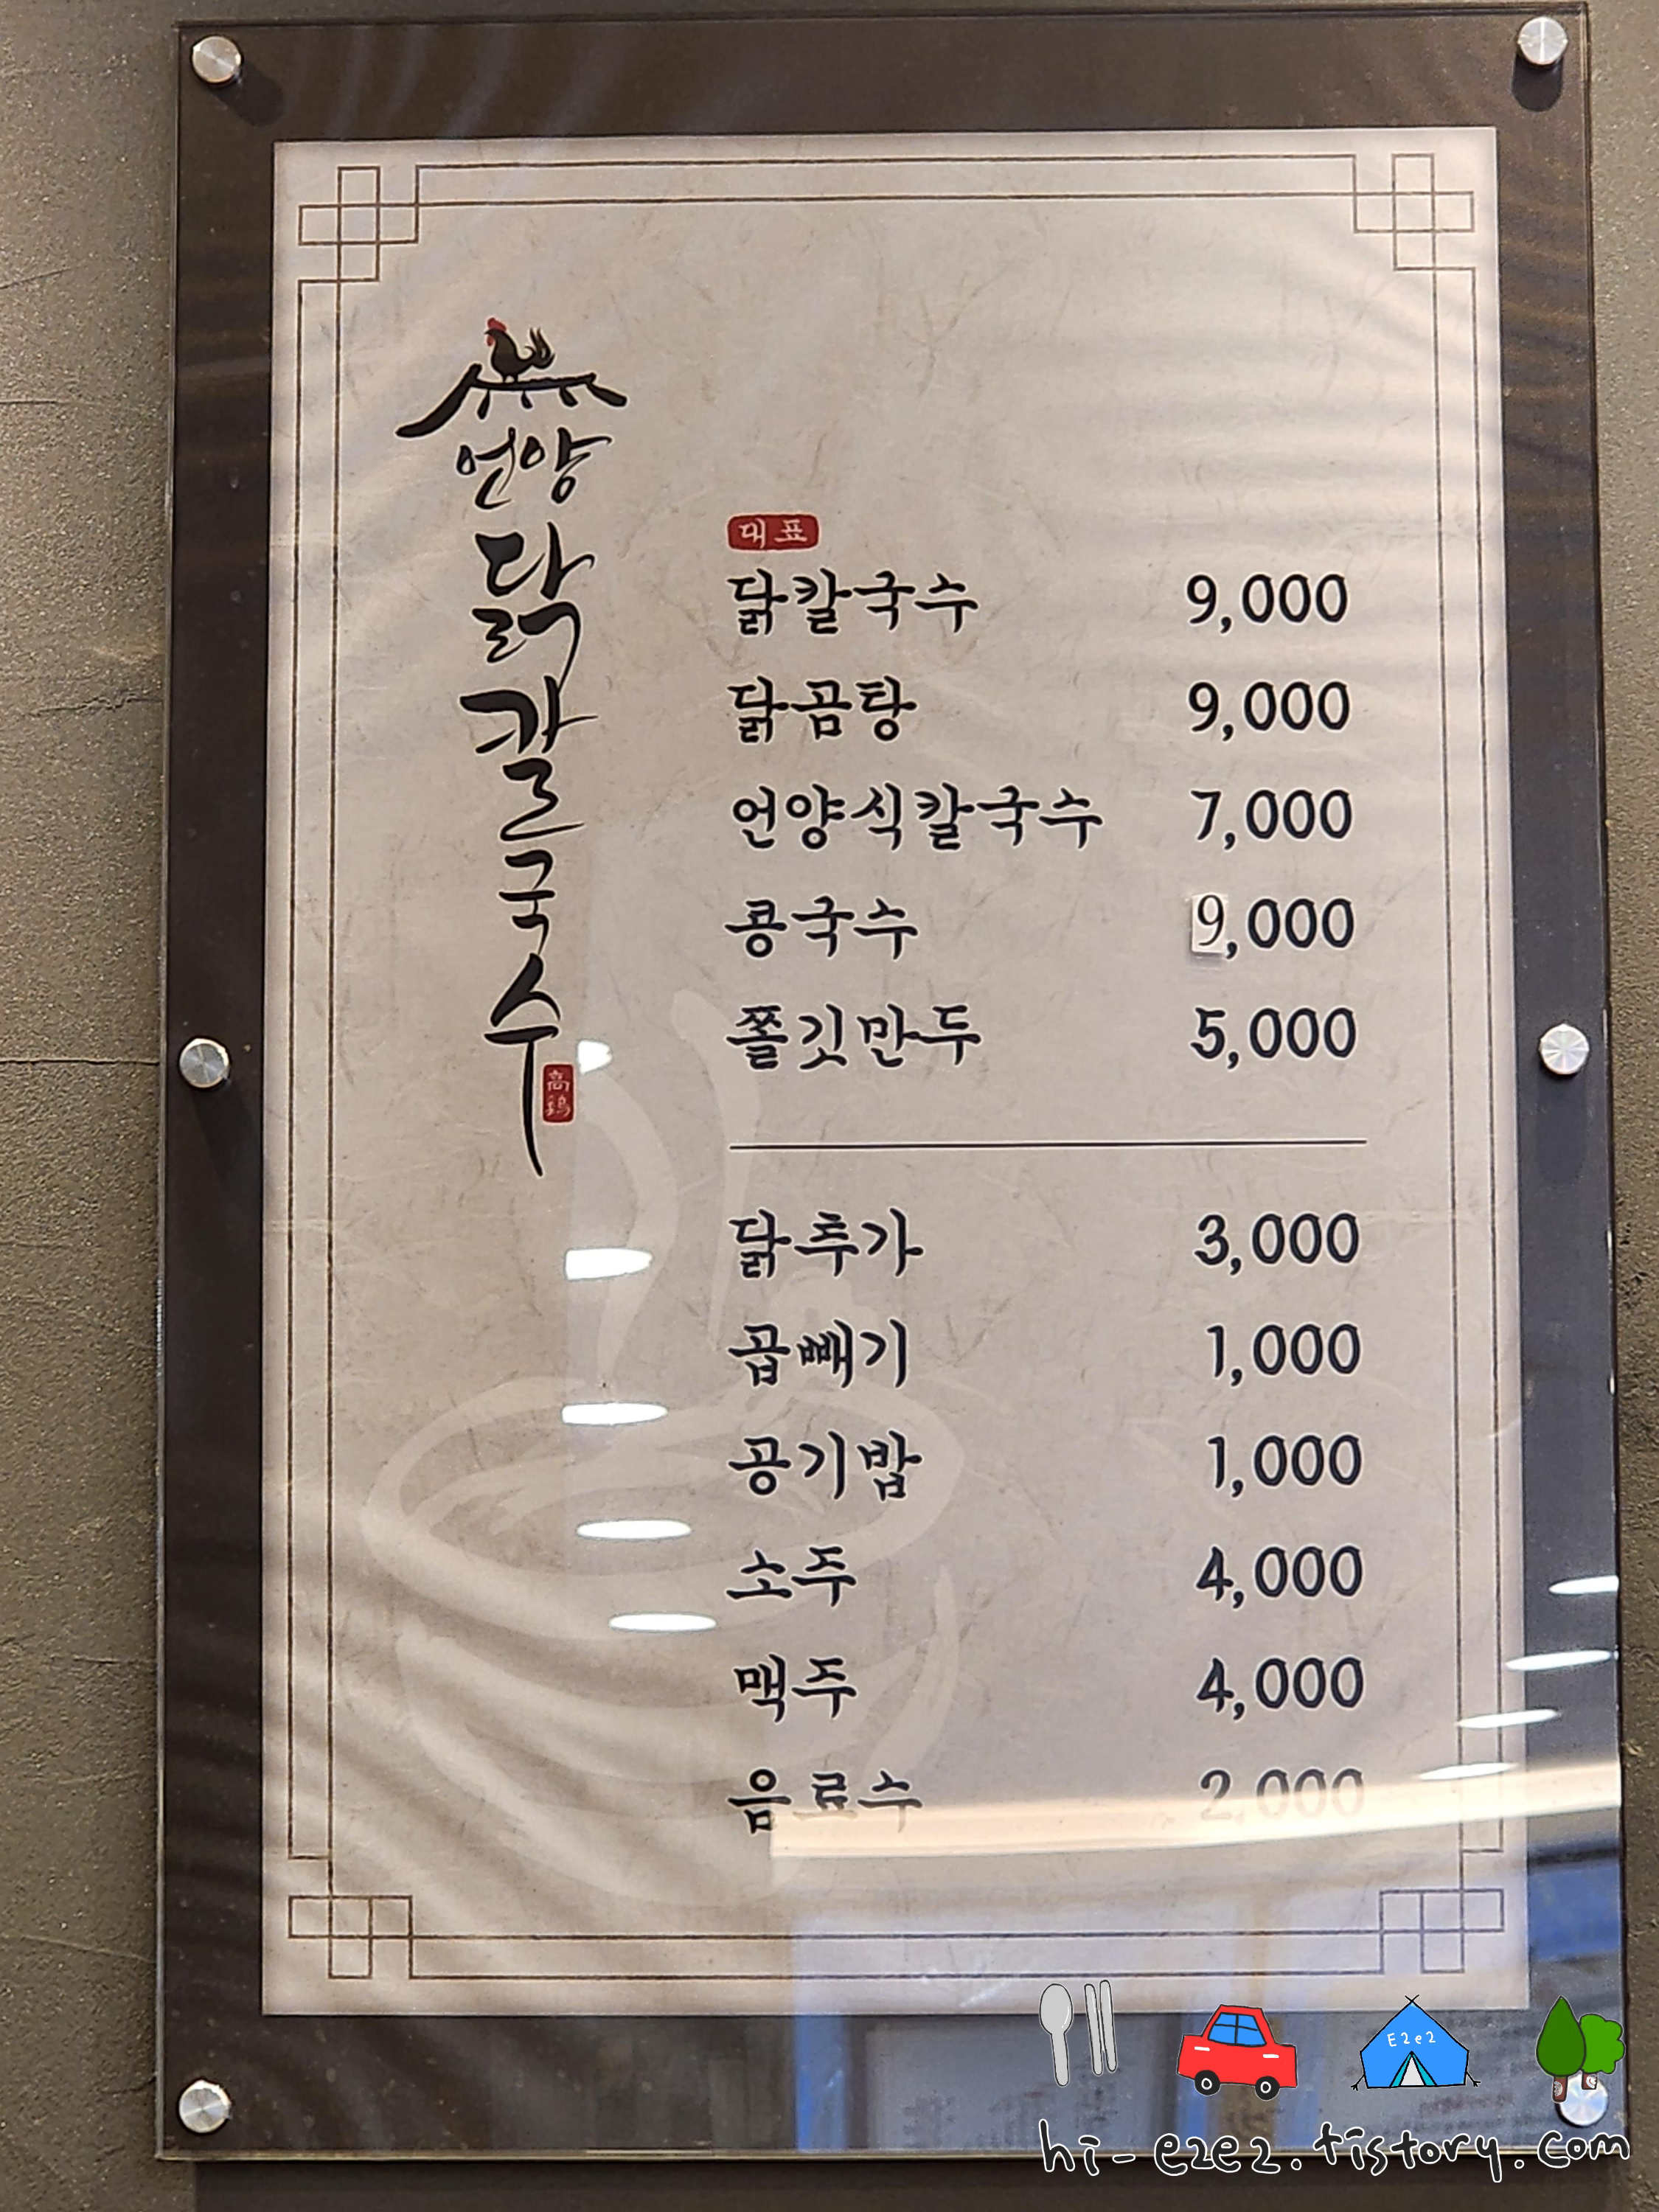 언양
닭
칼
국
수
高
鷄
대표
닭칼국수 9,000
닭곰탕 9,000
언양식칼국수 7,000
콩국수 9,000
쫄깃만두 5,000
닭추가 3,000
곱빼기 1,000
공기밥 1,000
소주 4,000
맥주 4,000
음료수 2,000
E2e2
hi-e2e2.tistory.com